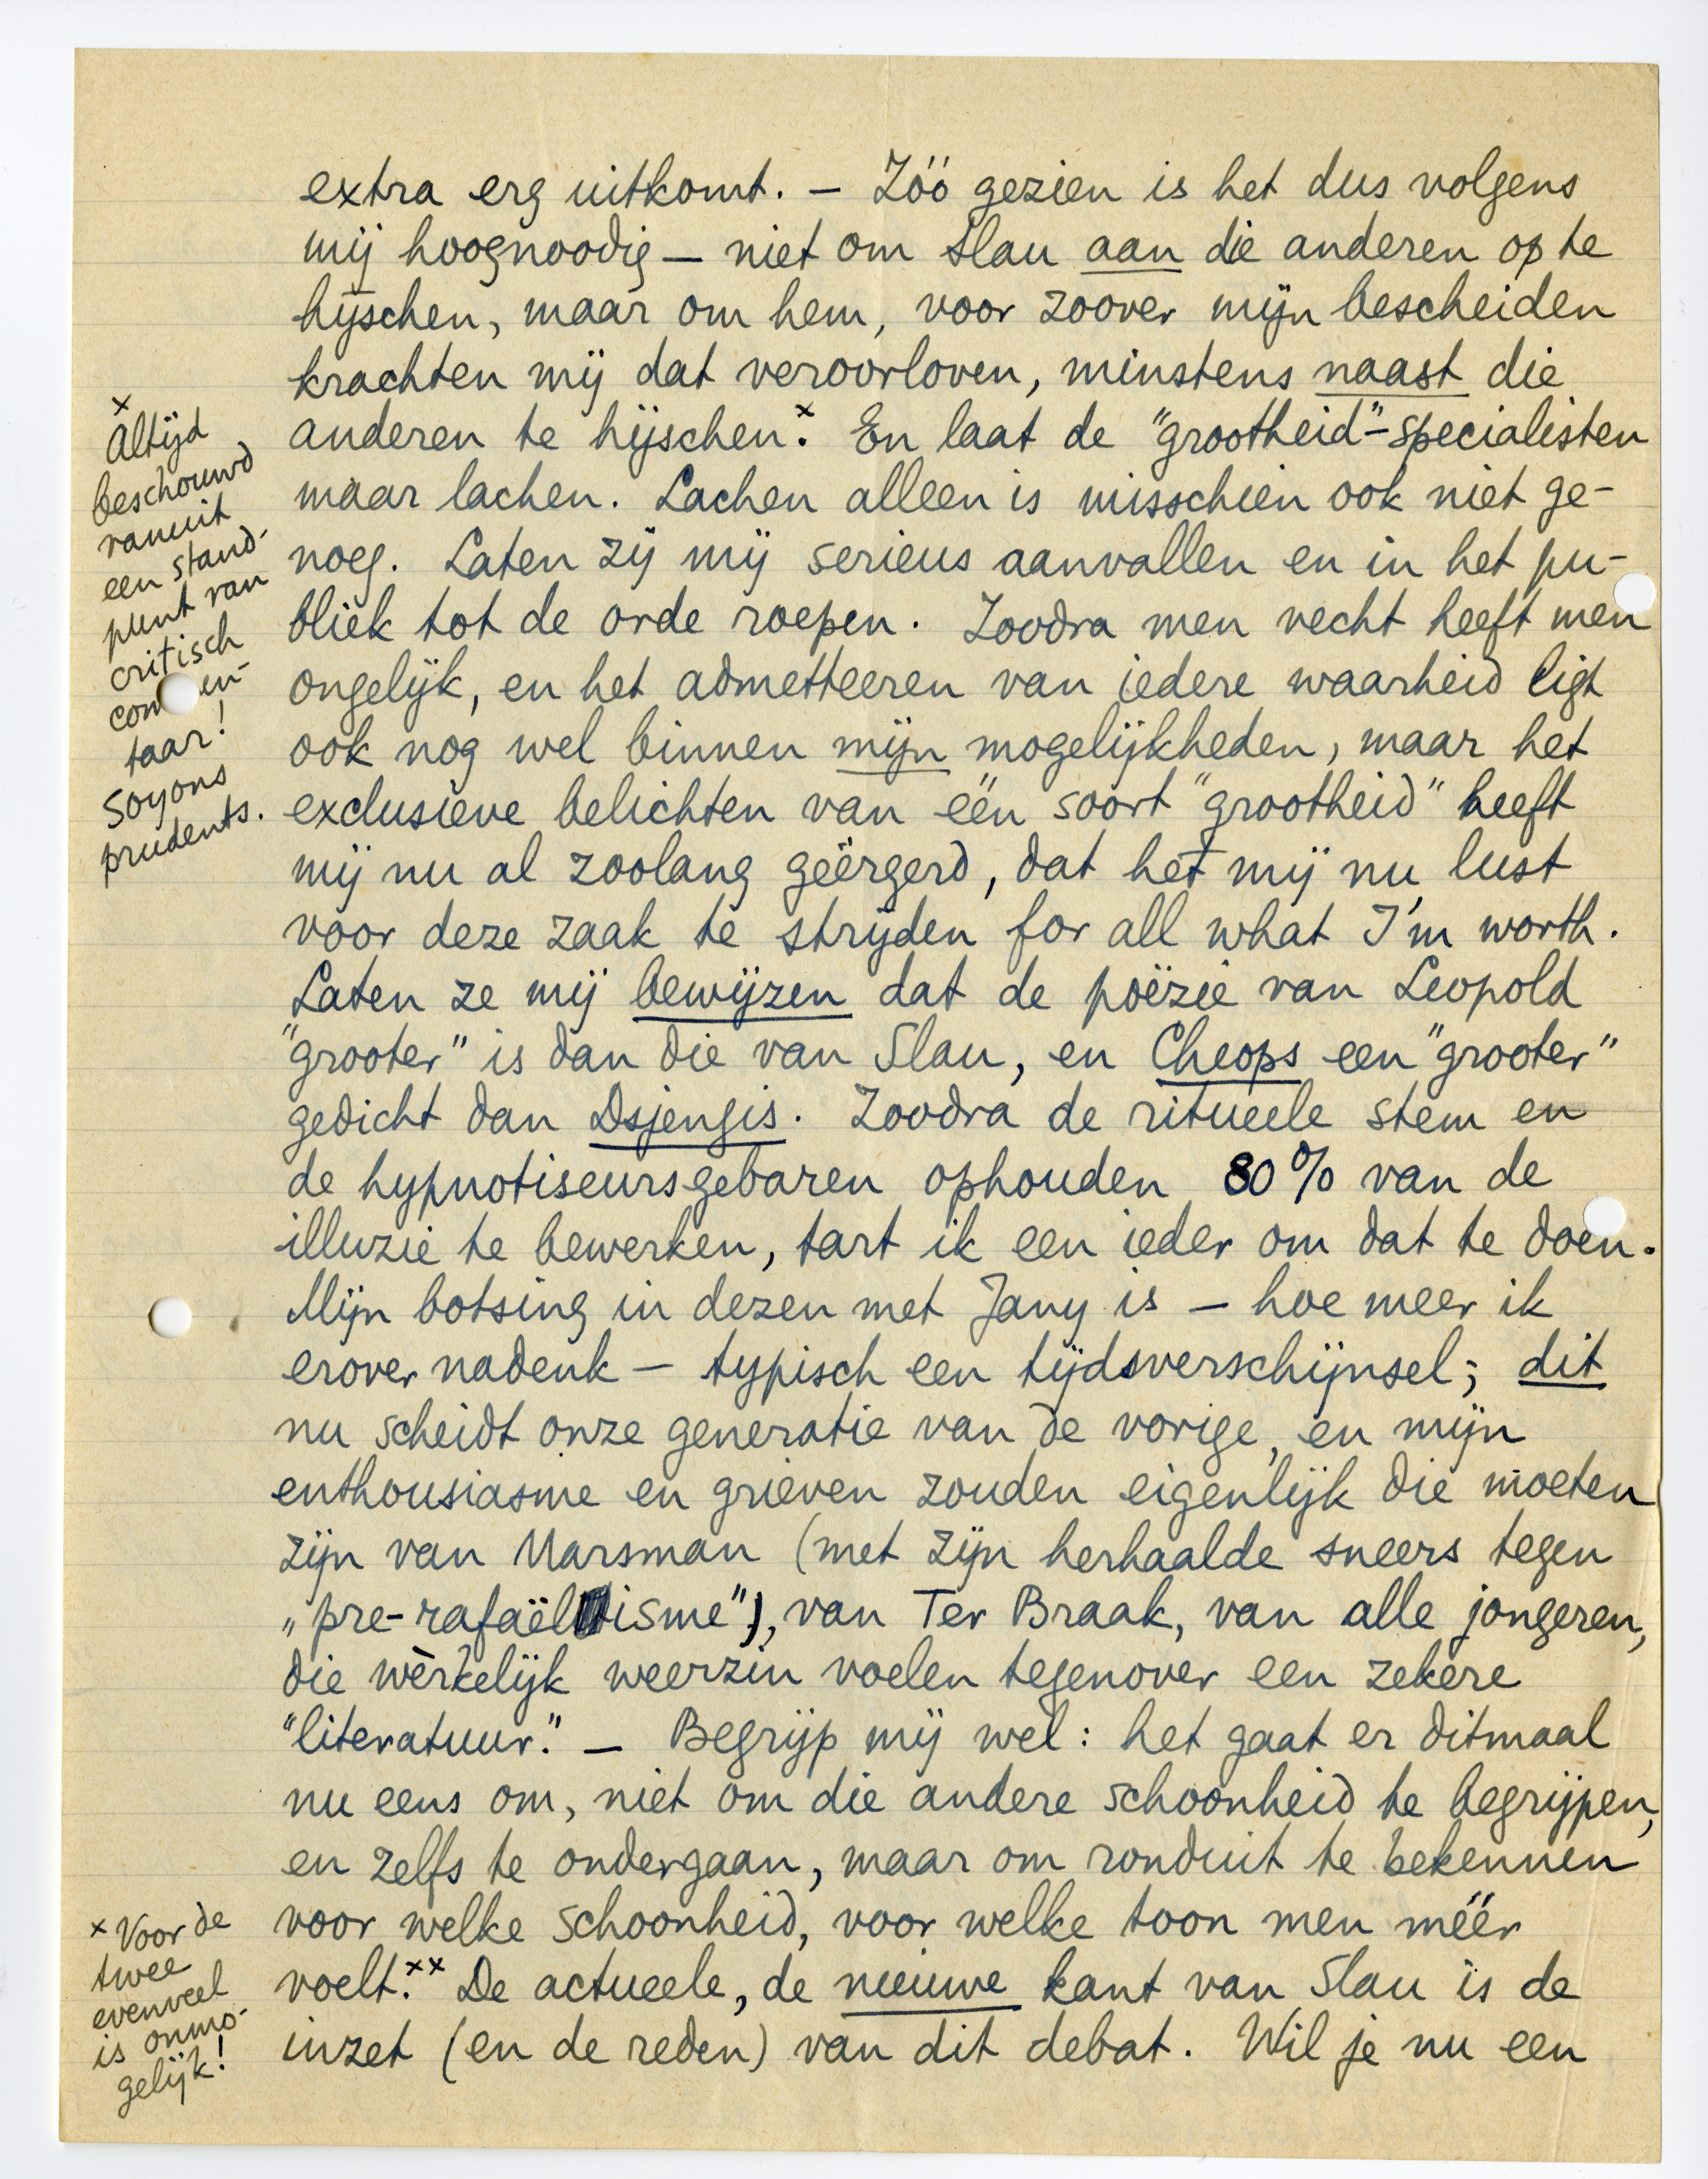 extra erg uitkomt. — Zóó gezien is het dus volgens
mij hoognoodig — niet om Slau aan die anderen op te
hijschen, maar om hem, voor zoover mijn bescheiden
krachten mij dat veroorloven, minstens naast die
anderen te hijschen.x En laat de "grootheid"-specialisten
maar lachen. Lachen alleen is misschien ook niet ge-
noeg. Laten zij mij serieus aanvallen en in het pu-
bliek tot de orde roepen. Zoodra men vecht heeft men
ongelijk, en het admetteeren van iedere waarheid ligt
ook nog wel binnen mijn mogelijkheden, maar het
exclusieve belichten van één soort "grootheid" heeft
mij nu al zoolang geërgerd, dat het mij nu lust
voor deze zaak te strijden for all what I'm worth.
Laten ze mij bewijzen dat de poëzie van Leopold
"grooter" is dan die van Slau, en Cheops een "grooter"
gedicht dan Dsjengis. Zoodra de ritueele stem en
de hypnotiseursgebaren ophouden 80% van de
illuzie te bewerken, tart ik een ieder om dat te doen.
Mijn botsing in dezen met Jany is — hoe meer ik
erover nadenk — typisch een tijdsverschijnsel; dit
nu scheidt onze generatie van de vorige, en mijn
enthousiasme en grieven zouden eigenlijk die moeten
zijn van Marsman (met zijn herhaalde sneers tegen
„pre-rafaëlisme"), van Ter Braak, van alle jongeren,
die wèrkelijk weerzin voelen tegenover een zekere
"literatuur." — Begrijp mij wel: het gaat er ditmaal
nu eens om, niet om die andere schoonheid te begrijpen,
en zelfs te ondergaan, maar om ronduit te bekennen
voor welke schoonheid, voor welke toon men méér
voelt.xx De actueele, de nieuwe kant van Slau is de
inzet (en de reden) van dit debat. Wil je nu een
x
Altijd
beschouwd
vanuit
een stand-
punt van
critisch
commen-
taar!
Soyons
prudents.
x Voor de
twee
evenveel
is onmo-
gelijk!